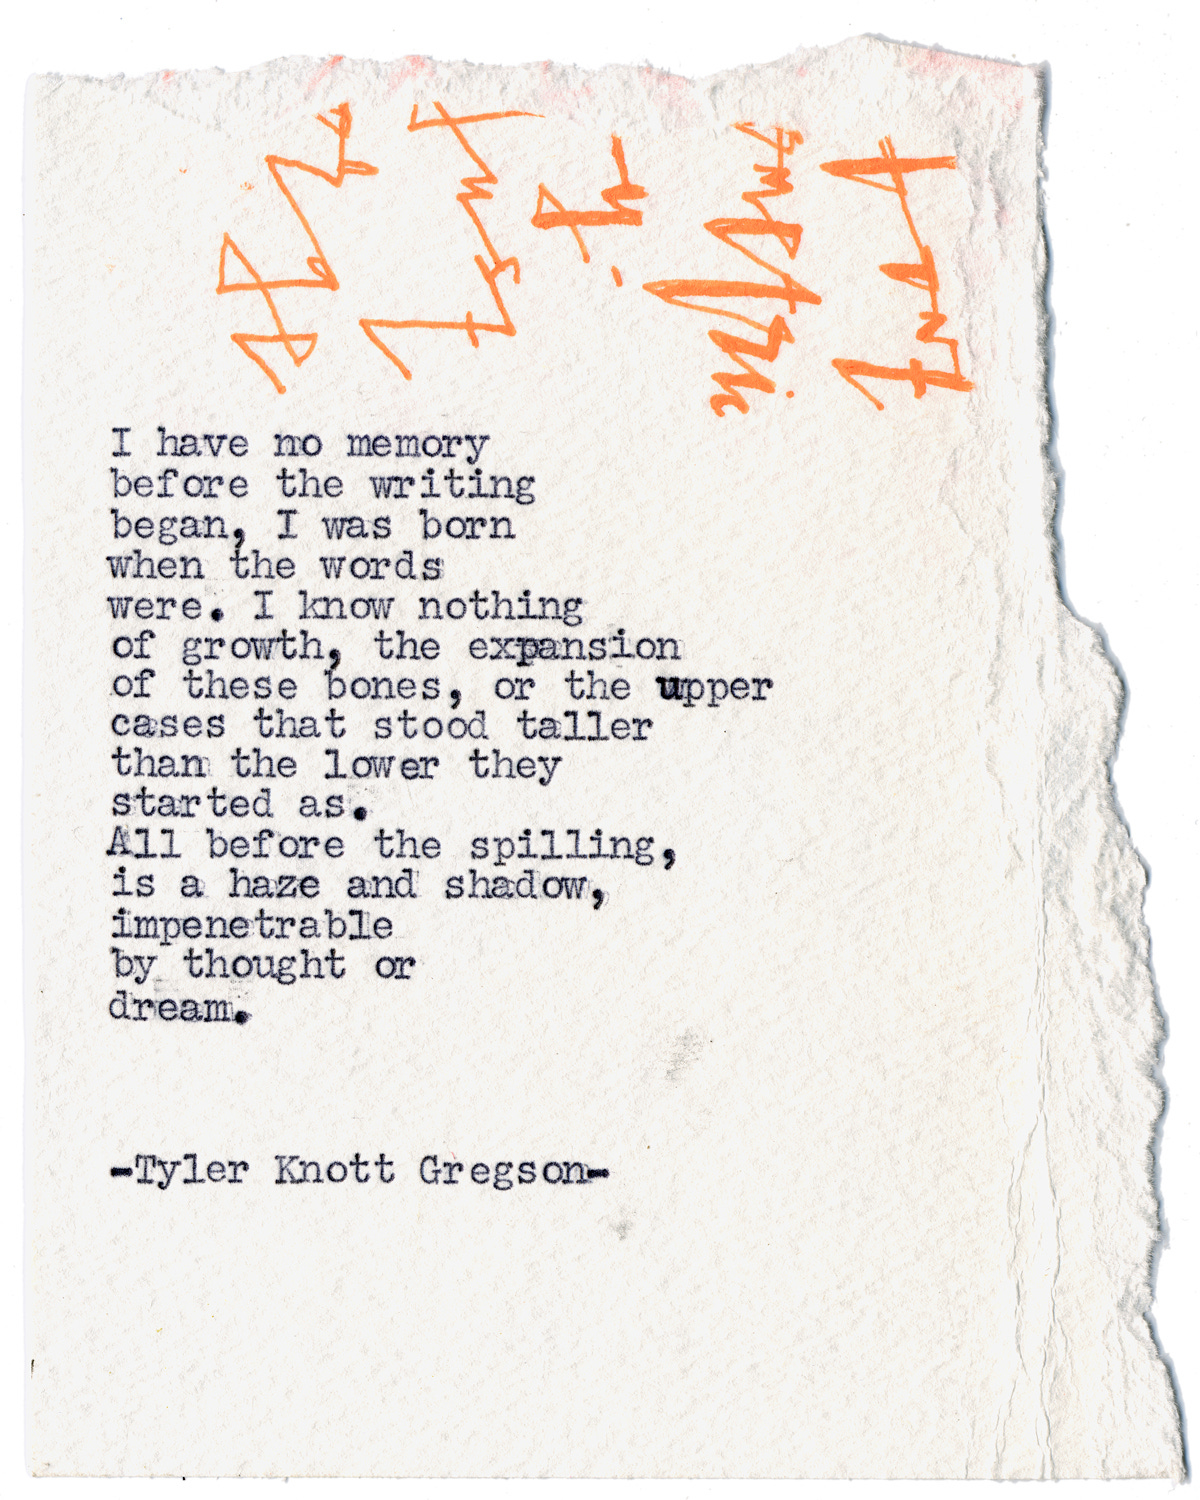 I have no memory
before the writing
began, I was born
when the words
were. I know nothing
of growth, the expansion
of these bones, or the upper
cases that stood taller
than the lower they
started as.
All before the spilling,
is a haze and shadow,
impenetrable
by thought or
dream.
-Tyler Knott Gregson-